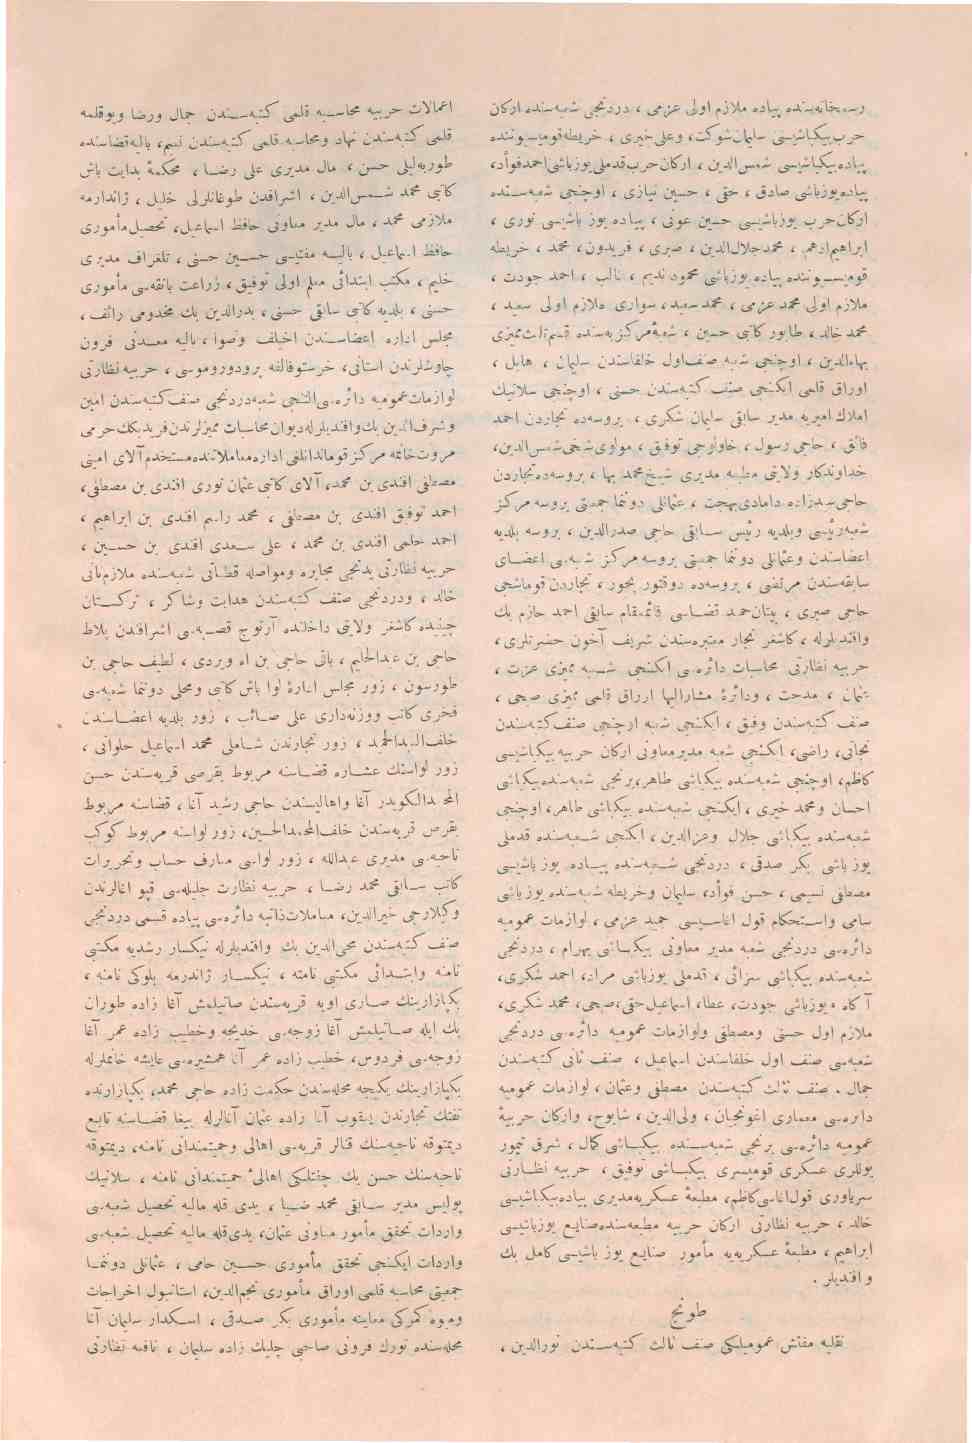 رسمخانه‌سنده پیاده ملازم اولی عزمی ، دردنجی شعبه‌سنده ارکان
حرب بیکباشیسی سلیمان شوکت، وعلی خیری ، خریطه قومیسیوننده
پیاده بیکباشیسی شمس‌الدین ، ارکان حرب قدملی یوزباشی احمد فواد،
پیاده یوزباشی صادق ، حقی ، حسین نیازی ، اوچنجی شعبه‌سنده
ارکان حرب یوزباشیسی حسین عونی ، پیاده یوز باشیسی نوری ،
ابراهیم ادهم ، محمد جلال‌الدین ، صبری ، فریدون ، محمد ، خریطه
قومیسیوننده پیاده یوزباشی محمود ندیم ، غالب ، احمد جودت ،
ملازم اولی محمد عزمی ، محمد سعید ، سواری ملازم اولی سعید ،
محمد خالد ، طابور کاتبی حسین ، شعبهٔ مرکزیه‌سنده قسم ثالث ممیزی
بهاءالدین ، اوچنجی شعبه صنف اول خلفاسندن سلیمان ، هابل ،
اوراق قلمی ایکنجی صنف کتبه‌سندن حسنی ، اوچنجی سلانیك
املاك امیریه مدیر سابقی سلیمان شکری ، بروسه‌ده تجاردن احمد
فائق ، حاجی رسول ، خاولوجی توفیق ، مولوی شیخی شمس‌الدین،
خداوندکار ولایتی مطبعه مدیری شیخ محمد بها ، بروسه‌ده تجاردن
حاجی سیدزاده دامادی بهجت ، عثمانلی دوننما جمعیتی بروسه مرکز
شعبه رئیسی وبلدیه رئیس سابقی حاجی صدرالدین ، بروسه بلدیه
اعضاسندن وعثمانلی دوننما جمعیتی بروسه مرکز شعبه‌سی اعضای
سابقه‌سندن مرتضی ، بروسه‌ده دوقتور بخور ، تجاردن قوماشجی
حاجی صبری ، قضاسی قائممقام سابقی احمد حازم بك
وافندیلرله ، کاشغر تجار معتبره‌سندن شریف آخون حضرتلری ،
حربیه نظارتی محاسبات دائره‌سی ایکنجی شعبه ممیزی عزت ،
عثمان ، مدحت ، ودائرهٔ مشارالیها اوراق قلمی ممیزی صبحی ،
صنف کتبه‌سندن وفیق ، ایکنجی شعبه اوچنجی صنف کتبه‌سندن
نجاتی، راضی، ایکنجی شعبه مدیر معاونی ارکان حربیه بیکباشیسی
کاظم، اوچنجی شعبه‌سنده بیکباشی طاهر، برنجی شعبه‌سنده بیکباشی
احسان ومحمد خیری ، ایکنجی شعبه‌سنده بیکباشی طاهر، اوچنجی
شعبه‌سنده بیکباشی جلال وعزالدین ، ایکنجی شعبه‌سنده قدملی
یوزباشی بکر صدقی ، دردنجی شعبه‌سنده پیاده یوزباشیسی
مصطفی نسیمی ، حسن فوأد، سلیمان وخریطه شعبه‌سنده یوزباشی
سامی واستحکام قول اغاسیسی حمید عزمی ، لوازمات عمومیه
دائره‌سی دردنجی شعبه مدیر معاونی بیکباشی بهرام ، دردنجی
شعبه‌سنده بیکباشی سزائی ، قدملی یوزباشی مراد، احمد شکری،
آکاه ، یوزباشی جودت، عطا، اسماعیل حقی، صبحی، محمد شکری،
ملازم اول حسنی ومصطفی ولوازمات عمومیه دائره‌سی دردنجی
شعبه‌سی صنف اول خلفاسندن اسماعیل ، صنف ثانی کتبه‌سندن
جمال . صنف ثالث کتبه‌سندن مصطفی وعثمان ، لوازمات عمومیه
دائره‌سی معماری اغونجیان ، ولی‌الدین ، شابوح، وارکان حربیهٔ
عمومیه دائره‌سی برنجی شعبه‌سنده بیکباشی کمال ، شرق تیمور
یوللری عسکری قومیسری بیکباشی توفیق ، حربیه نظارتی
سریاوری قول اغاسی کاظم، مطبعهٔ عسکریه مدیری پیاده بیکباشیسی
خالد ، حربیه نظارتی ارکان حربیه مطبعه‌سنده صنایع یوزباشیسی
ابراهیم ، مطبعهٔ عسکریه‌یه مأمور صنایع یوز باشیسی کامل بك
و افندیلر .
طونج
نقلیه مفتش عمومیلکی صنف ثالث کتبه‌سندن نورالدین ،
اعمالات حربیه محاسبه قلمی کتبه‌سندن جمال ورضا وبوقلمه
قلمی کتبه‌سندن نهاد ومحاسبه قلمی کتبه‌سندن نسیم، بالیه قضاسنده
حسن ، مال مدیری علی رضا ، محکمهٔ بدایت باش
کاتبی محمد شمس‌الدین ، اشرافدن طوغانلرلی خلیل ، ژاندارمه
ملازمی محمد ، مال مدیر معاونی حافظ اسماعیل، تحصیل مأموری
حافظ اسماعیل ، بالیه مفتیسی حسین حسنی ، تلغراف مدیری
حلیم ، مکتب ابتدائی معلم اولی توفیق ، زراعت بانقه‌سی مأموری
حسنی ، بلدیه کاتبی سابقی حسنی ، بدرالدین بك مخدومی رائف ،
مجلس اداره اعضاسندن اخیلف وصوا ، بالیه معدنی فرون
چاوشلرندن استانی، خرستوفالفه پرودوروموسی ، حربیه نظارتی
لوازمات عمومیه دائره‌سی التنجی شعبه دردنجی صنف کتبه‌سندن امین
وشرف‌الدین بك وافندیلرله دیوان محاسبات ممیزلرندن فرید بكك حرمی
مروت خانمه مرکز قوماندانلغی اداره معاملاتنده مستخدم آلای امینی
مصطفی افندی بن محمد، آلای کاتبی عثمان نوری افندی بن مصطفی،
احمد توفیق افندی بن مصطفی ، محمد راسم افندی بن ابراهیم ،
احمد حلمی افندی بن محمد ، علی سعدی افندی بن حسین ،
حربیه نظارتی یدنجی مخابره ومواصله قطعاتی شعبه‌سنده ملازم ثانی
خالد ، ودردنجی صنف کتبه‌سندن هدایت وشاکر ، ترکستان
چینیده کاشغر ولایتی داخلنده آرتوج قصبه‌سی اشرافندن بلاط
حاجی بن عبدالحلیم ، باقی حاجی بن اه ویردی ، لطیف حاجی بن
طورسون ، زور مجلس ادارهٔ لوا باش کاتبی ومحلی دوننما شعبه‌سی
فخری کاتب ووزنه‌داری علی صائب ، زور بلدیه اعضاسندن
خلف العبدالحمید ، زور تجارندن شاملی محمد اسماعیل حلوانی ،
زور لواسنك عشاره قضاسنه مربوط بقرصی قریه‌سندن حسن
آغا واهالیسندن حاجی رشید آغا ، قضاسنه مربوط
بقرص قریه‌سندن خلف العبدالحسین، زور لواسنه مربوط کوکب
ناحیه‌سی مدیری عبدالله ، زور لواسی معارف حساب وتحریرات
کاتب سابقی محمد رضا ، حربیه نظارت جلیله‌سی قپو اغالرندن
وکیلارجی خیرالدین، معاملات ذاتیه دائره‌سی پیاده قسمی دردنجی
صنف کتبه‌سندن محی‌الدین بك وافندیلرله نیکسار رشدیه مکتبی
نامنه وابتدائی مکتبی نامنه ، نیکسار ژاندرمه بلوکی نامنه ،
بکپازارینك صاری اویه قریه‌سندن صاتیلمش آغا زاده طوران
بك ایله صاتیلمش آغا زوجه‌سی خدیجه وخطیب زاده عمر آغا
زوجه‌سی فردوس، خطیب زاده عمر آغا همشیره‌سی عایشه خانملرله
بکپازارینك یکیجه محله‌سندن حکمت زاده حاجی محمد، بکپازارنده
تفتك تجارندن یعقوب آغا زاده عثمان آغالرله بیغا قضاسنه تابع
دیمتوقه ناحیه‌سنك قریه‌سی اهالی وحمیتمندانی نامنه، دیمتوقه
ناحیه‌سنك حسن بك چفتلکی اهالیٔ حمیتمندانی نامنه ، سلانیك
پولیس مدیر سابقی محمد ضیا ، یدی قله مالیه تحصیل شعبه‌سی
واردات تحقق مأمور معاونی عثمان، یدی قله مالیه تحصیل شعبه‌سی
واردات ایکنجی تحقق مأموری حسین حامی ، عثمانلی دوننما
جمعیتی محاسبه قلمی اوراق مأموری نجم‌الدین، استانبول اخراجات
ومیوه کمرکی معاینه مأموری بکر صدقی ، اسکدار سلیمان آغا
محله‌سنده تورك فرونی صاحبی چلیك زاده سلیمان ، نافعه نظارتی